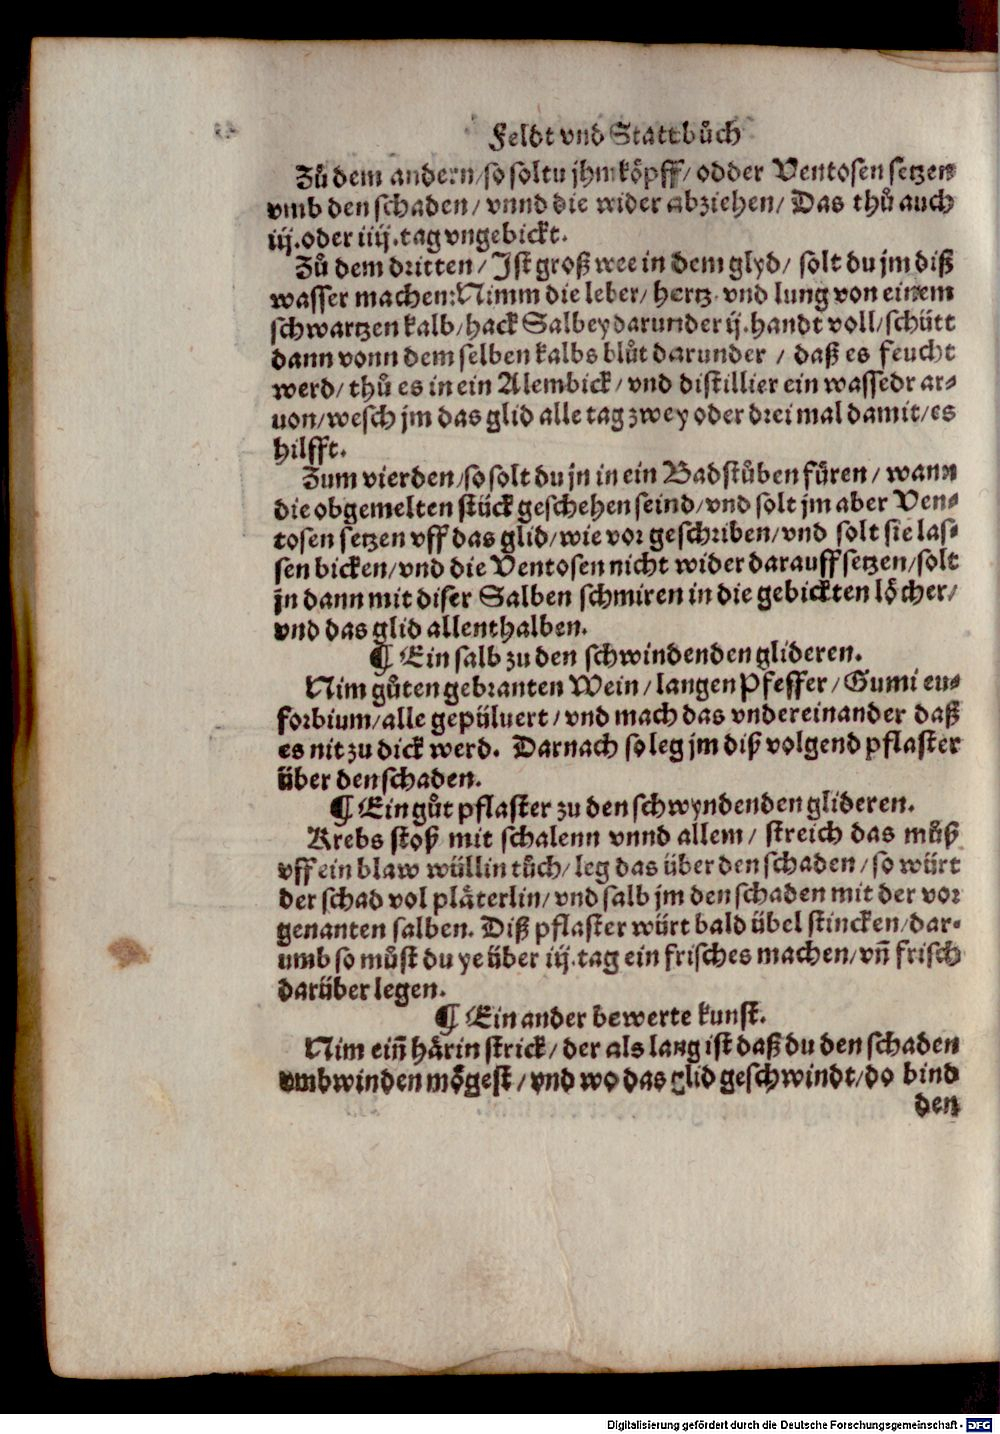 Feldt vnd Stattbůch
Zů dem andern/so soltu jhm köpff/ odder Ventosen setzen
vmb den schaden/ vnnd die wider abziehen/ Das thů auch
iij.oder iiij.tag vngebickt.
Zů dem dritten/ Ist groß wee in dem glyd/ solt du jm diß
wasser machen: Nimm die leber/ hertz vnd lung von einem
schwartzen kalb/ hack Salbey darunder ij.handt voll/schütt
dann vonn dem selben kalbs blůt darunder / daß es feucht
werd/ thů es in ein Alembick/ vnd distillier ein wassedr ar⸗
uon/wesch jm das glid alle tag zwey oder drei mal damit/es
hilfft.
Zum vierden/so solt du jn in ein Badstůben füren/ wann
die obgemelten stück geschehen seind/vnd solt jm aber Ven⸗
tosen setzen vff das glid/wie vor geschriben/vnd solt sie las⸗
sen bicken/vnd die Ventosen nicht wider darauff setzen/solt
jn dann mit diser Salben schmiren in die gebickten löcher/
vnd das glid allenthalben.
¶ Ein salb zu den schwindenden glideren.
Nim gůten gebranten Wein/langen Pfeffer/Gumi eu⸗
forbium/alle gepüluert/vnd mach das vndereinander daß
es nit zu dick werd. Darnach so leg jm diß volgend pflaster
über den schaden.
¶ Ein gůt pflaster zu den schwyndenden glideren.
Krebs stoß mit schalenn vnnd allem/ streich das můß
vff ein blaw wüllin tůch/leg das über den schaden/so würt
der schad vol pläterlin/vnd salb jm den schaden mit der vor
genanten salben. Diß pflaster würt bald übel stincken/dar⸗
umb so můst du ye über iij.tag ein frisches machen/vñ frisch
darüber legen.
¶ Ein ander bewerte kunst.
Nim eiñ härin strick/der als lang ist daß du den schaden
vmbwinden mögest/vnd wo das glid geschwindt/do bind
den
Digitalisierung gefördert durch die Deutsche Forschungsgemeinschaft - DFG